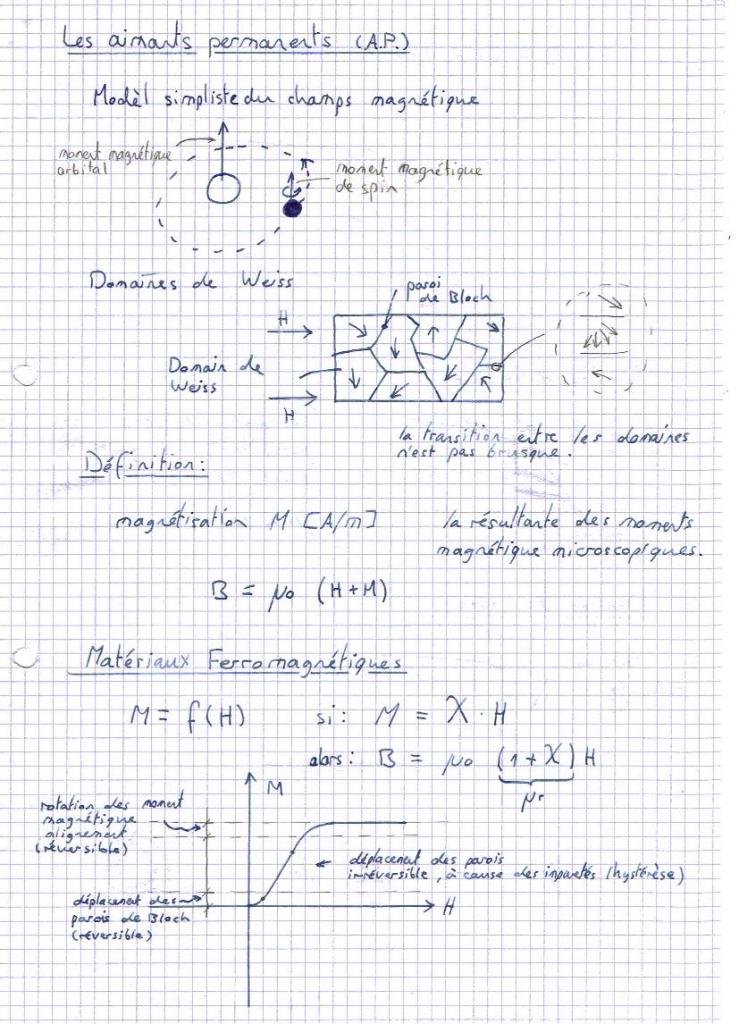 Les aimants permanents (A.P.)
Modèl simpliste du champs magnétique
moment magnétique
orbital
moment magnétique
de spin
Domaînes de Weiss
paroi
de Bloch
H
Domain de
Weiss
H
la transition entre les domaines
n'est pas brusque.
Définition:
magnétisation M [A/m]
la résultante des moments
magnétique microscopiques.
B = μ0 (H+M)
Matériaux Ferromagnétiques
M = f(H) si: M = χ · H
alors: B = μ0 (1+χ) H
μr
M
rotation des moment
magnétique
alignement
(réversible)
déplacement des parois
irréversible, à cause des impuretés (hystérèse)
déplacement des
parois de Bloch
(réversible)
H